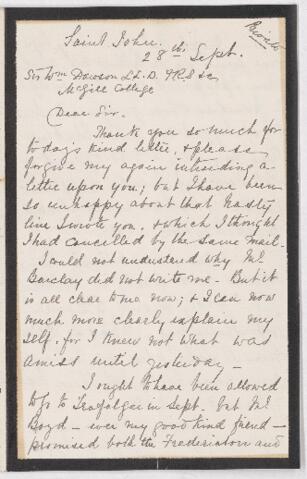 Private
Saint John.
28th Sept.
Sir Wm Dawson LL.D. F.R.S &c
McGill College
Dear Sir.
Thank you so much for
to day's kind letter, & please
forgive my again intruding a
letter upon you; but I have been
so unhappy about that hasty
line I wrote you, & which I thought
I had cancelled by the same mail.
I could not understand why Mr
Barclay did not write me. But it
is all clear to me now; & I can now
much more clearly explain my
self. for I knew not what was
amiss until yesterday —
I ought to have been allowed
to go to Trafalgar in Sept. but Mr
Boyd — ever my good kind friend —
promised both the Fredericton and